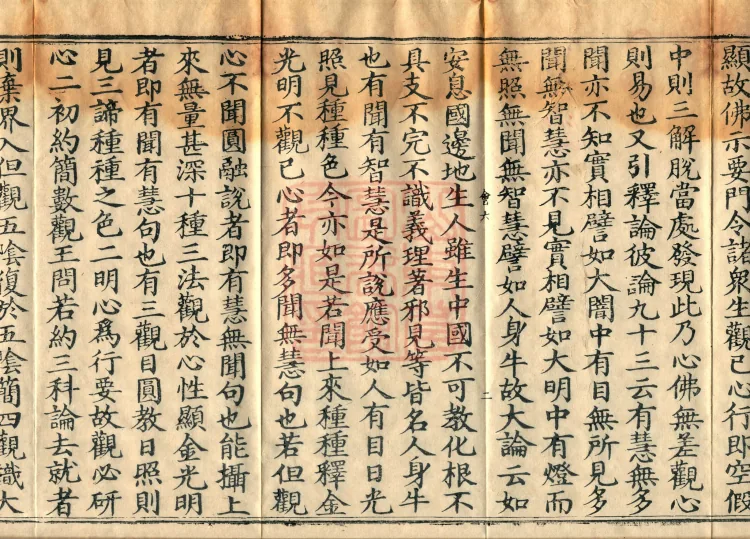 顯故佛示要門令諸衆生觀己心行即空假
中則三解脫當處發現此乃心佛無差觀心
則易也又引釋論彼論九十三云有慧無多
聞亦不知實相譬如大闇中有目無所見多
聞無智慧亦不見實相譬如大明中有燈而
無照無聞無智慧譬如人身牛故大論云如
會六
二
安息國邊地生人雖生中國不可教化根不
具支不完不識義理著邪見等皆名人身牛
也有聞有智慧是所說應受如人有目日光
照見種種色今亦如是若聞上來種種釋金
光明不觀己心者即多聞無慧句也若但觀
心不聞圓融說者即有慧無聞句也能攝上
來無量甚深十種三法觀於心性顯金光明
者即有聞有慧句也有三觀目圓教日照則
見三諦種種之色二明心爲行要故觀必研
心二初約簡數觀王問若約三科論去就者
則棄界入但觀五陰復於五陰簡四觀識大